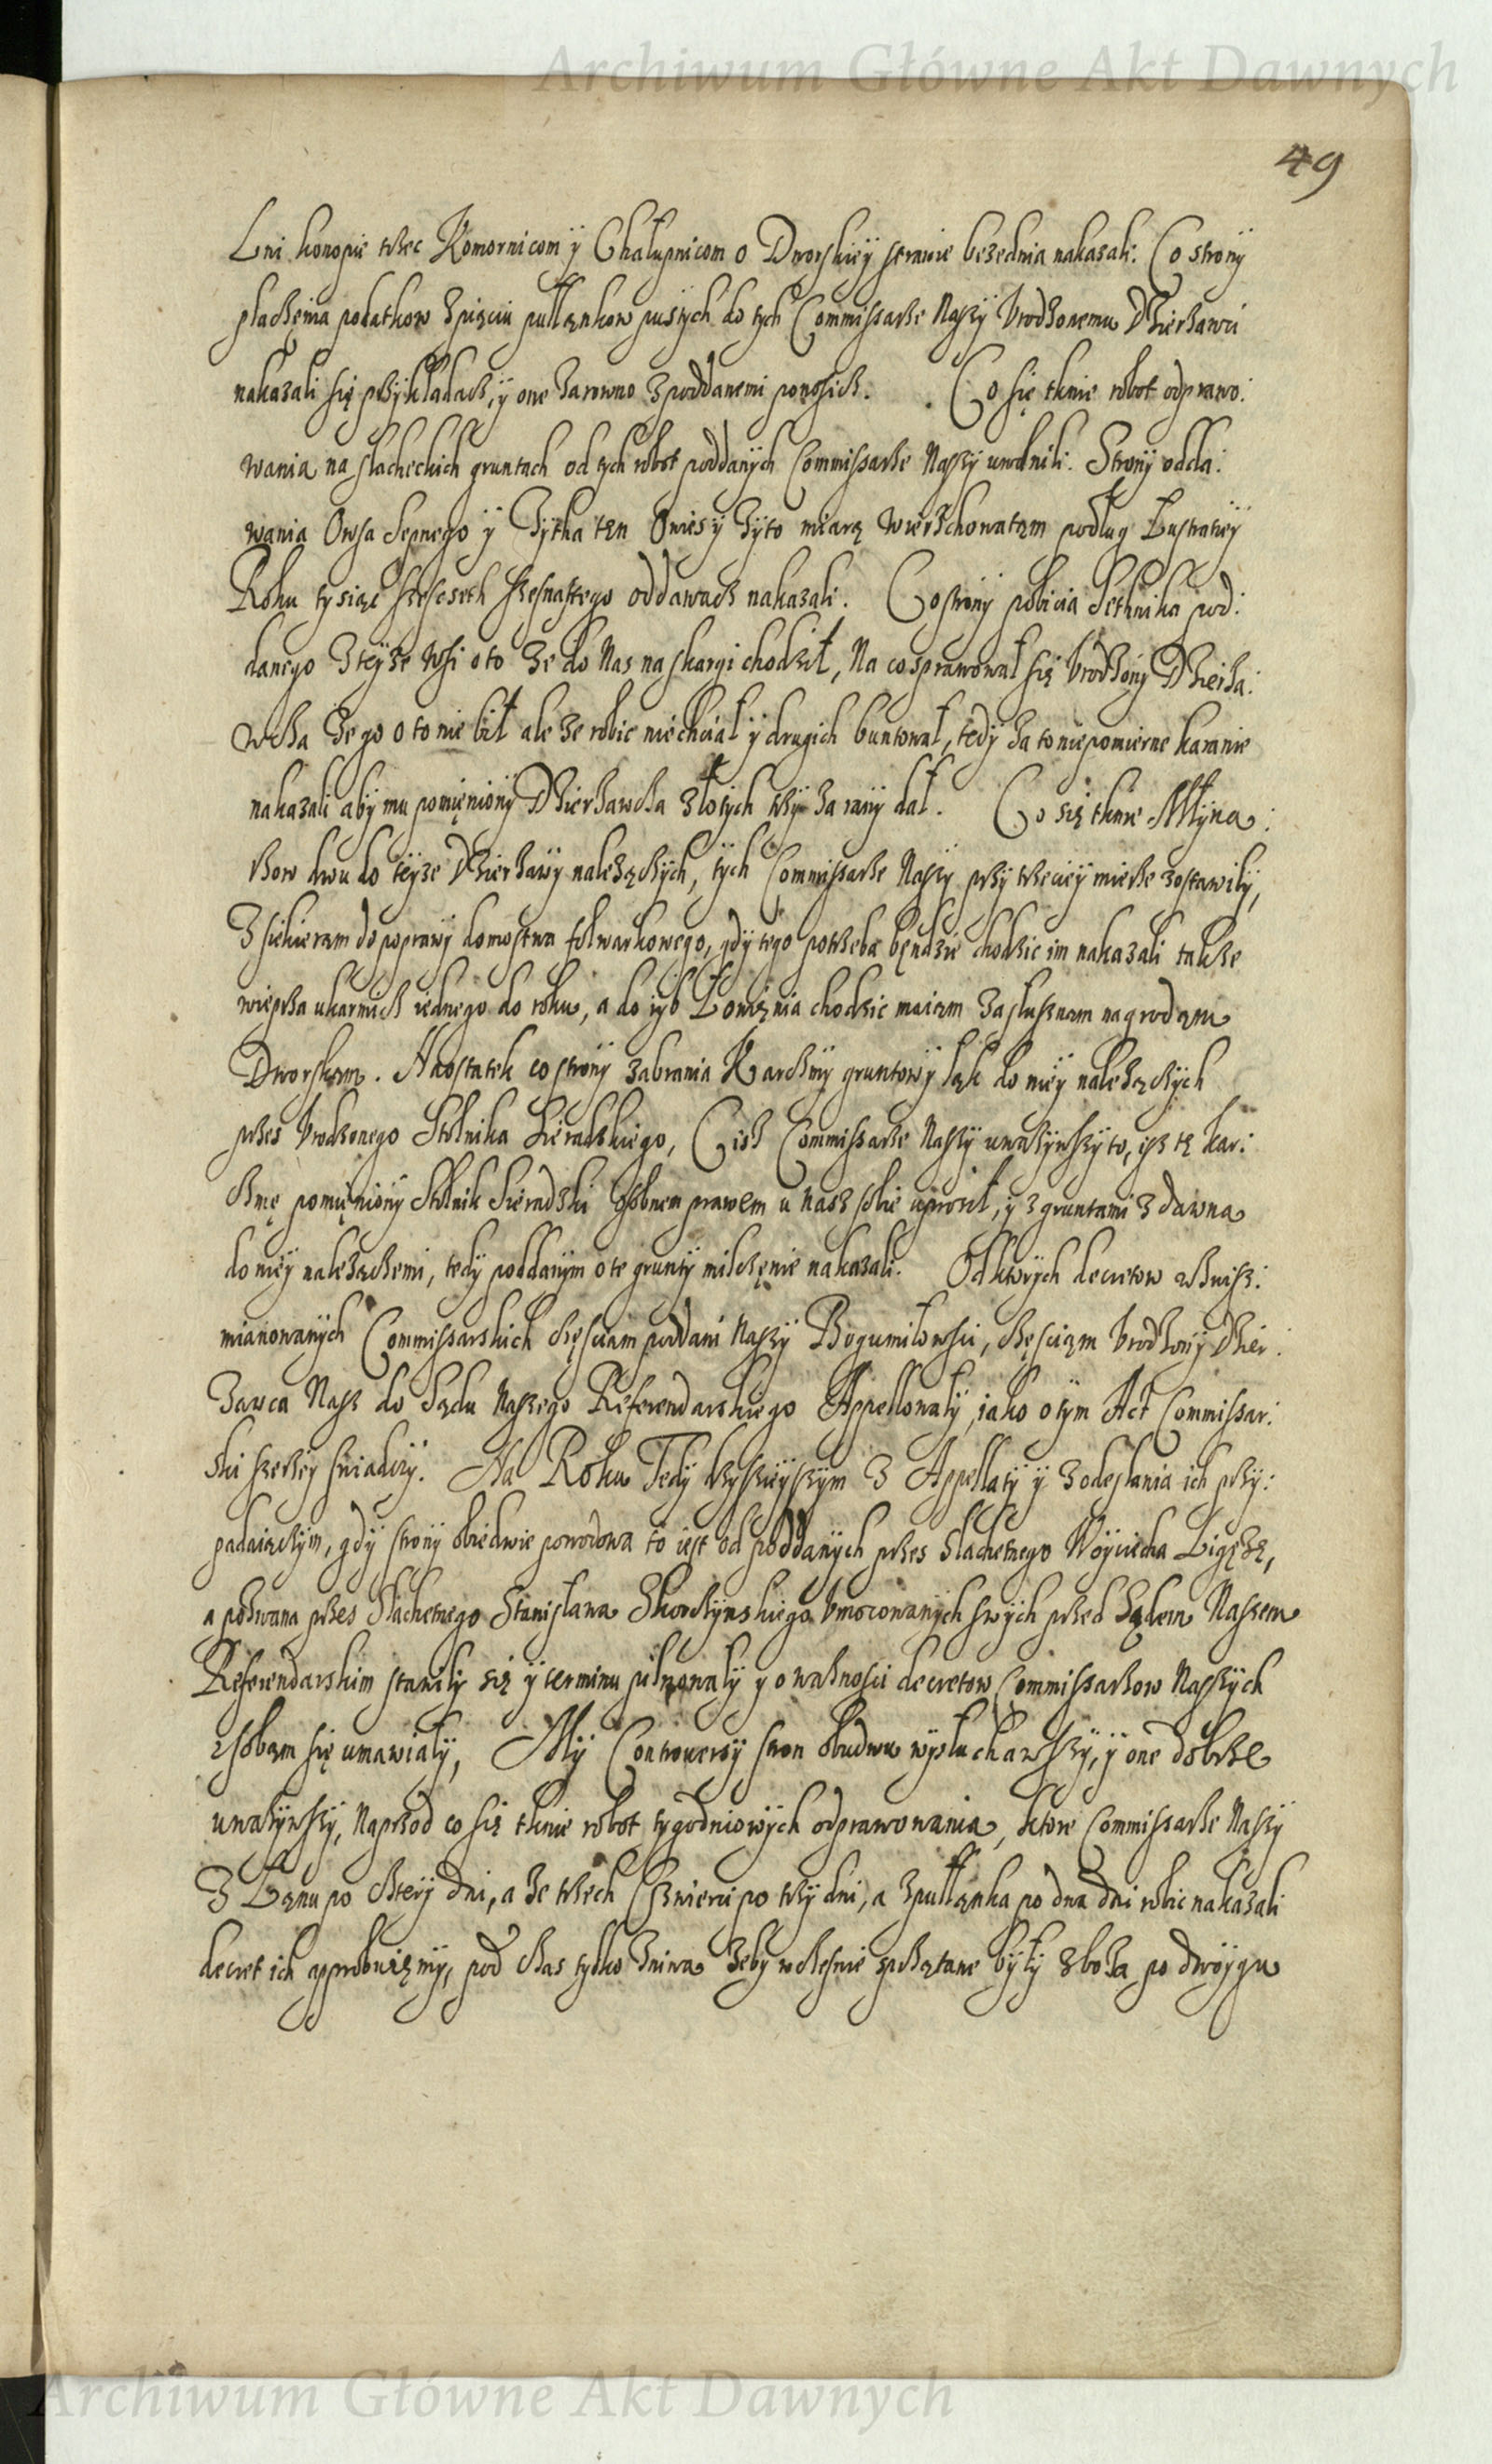 Archiwum Główne Akt Dawnych
49
Lni konopie trzec Komornicom y Chałupnicom o Dworskiey strawie bezednia nakazali. Co strony
płaczenia podatkow z piąciu pułłankow pustych do tych Commissarze Naszy Vrodzonemu Dzierzawci
nakazali się przykładacz, y one zarowno z poddanemi ponosicz. Co się tknie robot odprawo:
wania na slacheckich gruntach od tych robot poddanych Commissarze Naszy uwolnili. Strony odda:
wania Owsa Sepnego y Żytka ten Owies y Żyto miarą wierzchowatąm podług Lustratiey
Roku tysiąc szescseth szesnastego oddawacz nakazali. Co strony pobicia Sethnika pod:
danego z teyze wsi o to ze do Nas na skargi chodził, Na co sprawował się Vrodzony Dzierza:
wcza ze go o to nie bił ale ze robic nie chciał y drugich buntował, tedy za to niepomierne karanie
nakazali aby mu pomięniony Dzierzawcza złotych trzy za rany dał. Co się tknie Młyna:
rzow dwu do teyze Dzierzawy nalezączych, tych Commissarze Naszy przy trzeciey mierze zostawily,
z siekieram do poprawy domostwa folwarkowego, gdy tego potrzeba będzie chodzic im nakazali takze
wieprza ukarmicz iednego do roku, a do ryb Łowienia chodzic maiąm za słusznam nagrodąm
Dworskąm. Naostatek co strony zabrania Karczmy gruntow y łąk do niey nalezączych
przes Vrodzonego Stolnika Sieradzkiego, Cisz Commissarze Naszy uwazywszy to, isz tę kar:
czmę pomięniony Stolnik Sieradzki osobnem prawem u nasz sobie uprosił, y z gruntami z dawna
do niey nalezączemi, tedy poddanym o te grunty milczenie nakazali. Od ktorych decretow zwysz:
mianowanych Commissarskich częsciam poddani Naszy Bogumiłowscy, częsciąm Vrodzony Dzier:
zawca Nasz do Sądu Naszego Referendarskiego Appellowały, iako o tym Act Commissar:
ski szerzey swiadczy. Na Roku Tedy dzisieyszym z Appellaty y z odesłania ich przy:
padaiączym, gdy strony obiedwie powodowa to iest od poddanych przes Slachetnego Woyciecha Ligęzę,
a pozwana przes Slachetnego Stanisława Skorczynskiego Vmocowanych swych przed Sądem Naszem
Referendarskim stawily się y terminu pilnowały y o waznosci decretow Commissarzow Naszych
z sobąm się umawiały, My Controwersy stron obudwu wysłuchawszy, y one dobrze
uwazywszy, Naprzod co się tknie robot tygodniowych odprawowania, ktore Commissarze Naszy
z Łanu po cztery dni, a ze trzech czwierci po trzy dni, a z pułłanka po dwa dni robic nakazali
decret ich approbuięmy, pod czas tylko zniwa zeby wczesnie sprzątane były zboza po dwoygu
Archiwum Główne Akt Dawnych